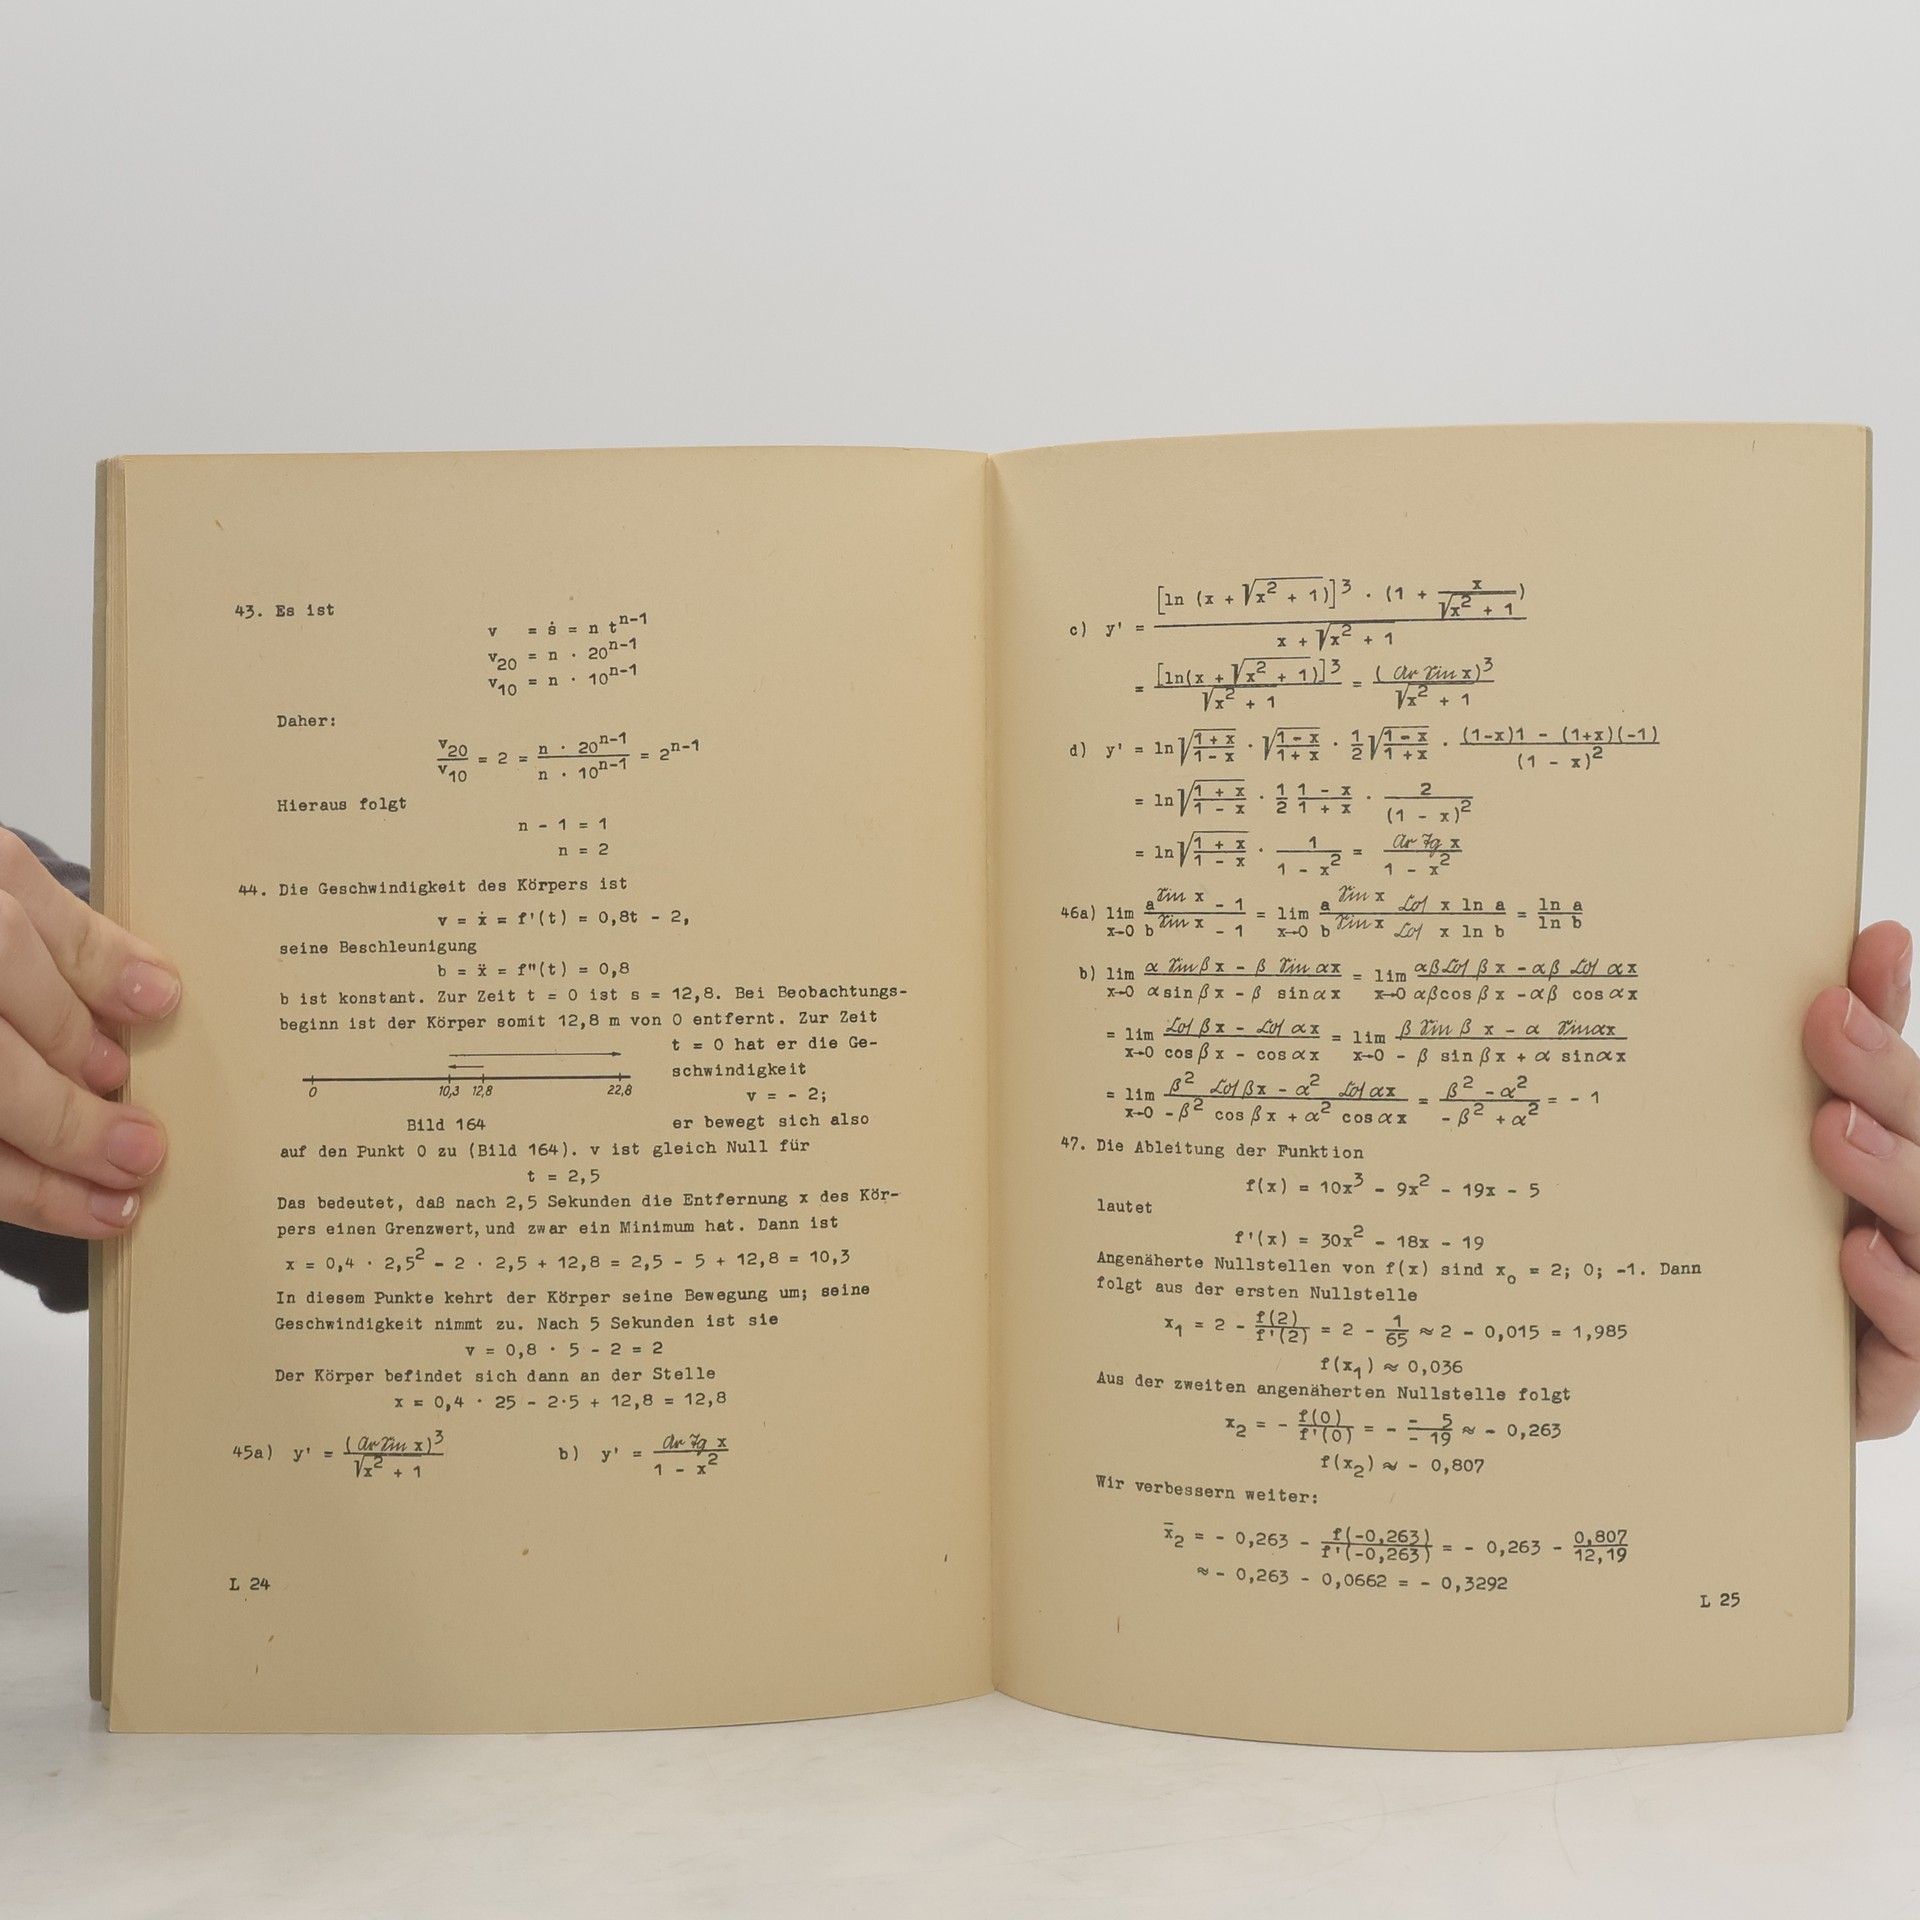 43. Es ist
v = ṡ = n t^{n-1}
v_{20} = n · 20^{n-1}
v_{10} = n · 10^{n-1}
Daher:
v_{20}/v_{10} = 2 = (n · 20^{n-1})/(n · 10^{n-1}) = 2^{n-1}
Hieraus folgt
n - 1 = 1
n = 2
44. Die Geschwindigkeit des Körpers ist
v = ẋ = f'(t) = 0,8t - 2,
seine Beschleunigung
b = ẍ = f"(t) = 0,8
b ist konstant. Zur Zeit t = 0 ist s = 12,8. Bei Beobachtungs-
beginn ist der Körper somit 12,8 m von 0 entfernt. Zur Zeit
t = 0 hat er die Ge-
schwindigkeit
0 10,3 12,8 22,8
v = - 2;
Bild 164
er bewegt sich also
auf den Punkt 0 zu (Bild 164). v ist gleich Null für
t = 2,5
Das bedeutet, daß nach 2,5 Sekunden die Entfernung x des Kör-
pers einen Grenzwert, und zwar ein Minimum hat. Dann ist
x = 0,4 · 2,5² - 2 · 2,5 + 12,8 = 2,5 - 5 + 12,8 = 10,3
In diesem Punkte kehrt der Körper seine Bewegung um; seine
Geschwindigkeit nimmt zu. Nach 5 Sekunden ist sie
v = 0,8 · 5 - 2 = 2
Der Körper befindet sich dann an der Stelle
x = 0,4 · 25 - 2·5 + 12,8 = 12,8
45a) y' = (Ar Sin x)³/√(x² + 1) b) y' = (Ar Tg x)/(1 - x²)
L 24
c) y' = ([ln (x + √(x² + 1))]³ · (1 + x/√(x² + 1)))/(x + √(x² + 1))
= [ln(x + √(x² + 1))]³/√(x² + 1) = (Ar Sin x)³/√(x² + 1)
d) y' = ln√((1 + x)/(1 - x)) · √((1 - x)/(1 + x)) · 1/2 √((1 - x)/(1 + x)) · ((1-x)1 - (1+x)(-1))/(1 - x)²
= ln√((1 + x)/(1 - x)) · 1/2 (1 - x)/(1 + x) · 2/(1 - x)²
= ln√((1 + x)/(1 - x)) · 1/(1 - x²) = (Ar Tg x)/(1 - x²)
46a) lim_{x→0} (a^{Sin x} - 1)/(b^{Sin x} - 1) = lim_{x→0} (a^{Sin x} Cof x ln a)/(b^{Sin x} Cof x ln b) = ln a/ln b
b) lim_{x→0} (α Sin βx - β Sin αx)/(α sin βx - β sin αx) = lim_{x→0} (αβ Cof βx - αβ Cof αx)/(αβ cos βx - αβ cos αx)
= lim_{x→0} (Cof βx - Cof αx)/(cos βx - cos αx) = lim_{x→0} (β Sin βx - α Sin αx)/(- β sin βx + α sin αx)
= lim_{x→0} (β² Cof βx - α² Cof αx)/(- β² cos βx + α² cos αx) = (β² - α²)/(- β² + α²) = - 1
47. Die Ableitung der Funktion
f(x) = 10x³ - 9x² - 19x - 5
lautet
f'(x) = 30x² - 18x - 19
Angenäherte Nullstellen von f(x) sind x₀ = 2; 0; -1. Dann
folgt aus der ersten Nullstelle
x₁ = 2 - f(2)/f'(2) = 2 - 1/65 ≈ 2 - 0,015 = 1,985
f(x₁) ≈ 0,036
Aus der zweiten angenäherten Nullstelle folgt
x₂ = - f(0)/f'(0) = - (- 5)/(- 19) ≈ - 0,263
f(x₂) ≈ - 0,807
Wir verbessern weiter:
x̄₂ = - 0,263 - f(-0,263)/f'(-0,263) = - 0,263 - 0,807/12,19
≈ - 0,263 - 0,0662 = - 0,3292
L 25